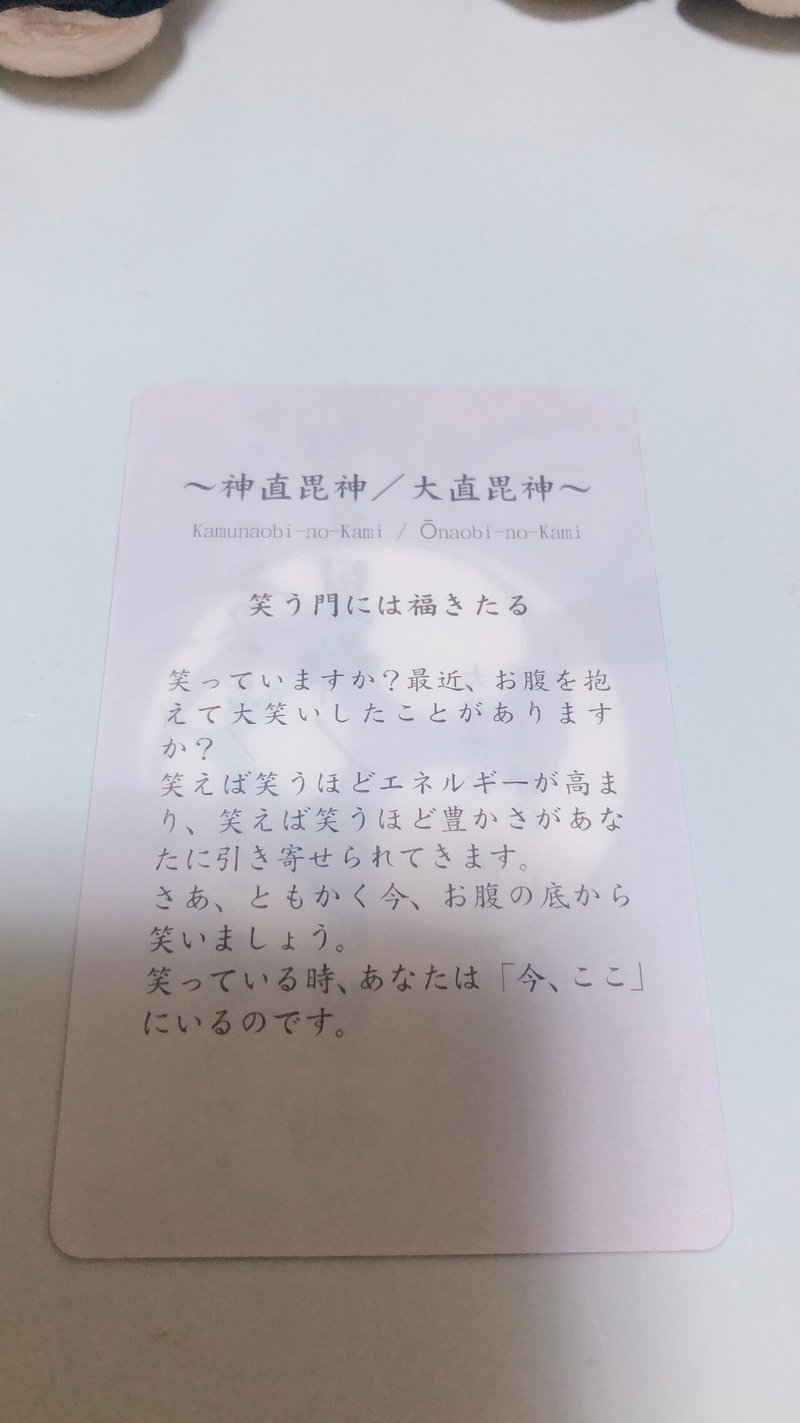 ～神直毘神／大直毘神～
Kamunaobi-no-Kami / Ōnaobi-no-Kami
笑う門には福きたる
笑っていますか？最近、お腹を抱
えて大笑いしたことがあります
か？
笑えば笑うほどエネルギーが高ま
り、笑えば笑うほど豊かさがあな
たに引き寄せられてきます。
さあ、ともかく今、お腹の底から
笑いましょう。
笑っている時、あなたは「今、ここ」
にいるのです。